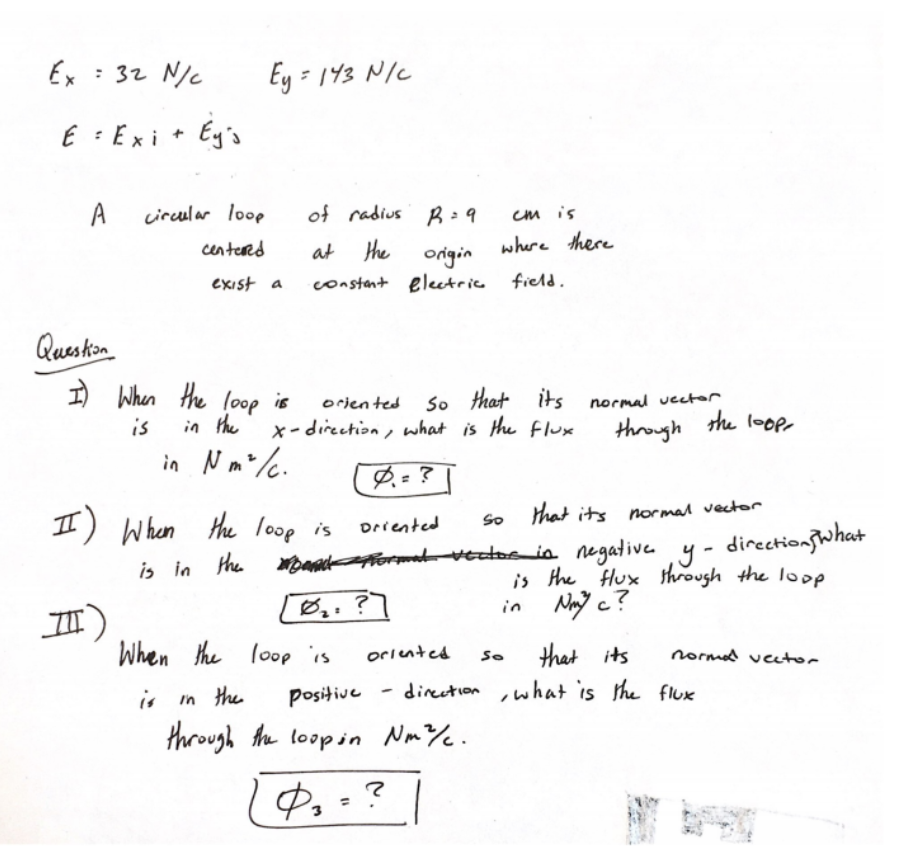 Ex = 32 N/C Ey = 143 N/C
E = Ex i + Ey j
A circular loop of radius R = 9 cm is
centered at the origin where there
exist a constant electric field.
Question
I) When the loop is oriented so that its normal vector
is in the x-direction, what is the flux through the loop,
in N m²/c.
Ø₁ = ?
II) When the loop is oriented so that its normal vector
is in the negative y-direction, what
is the flux through the loop
in Nm²/c?
Ø₂ = ?
III)
When the loop is oriented so that its normal vector
is in the positive - direction, what is the flux
through the loop in Nm²/c.
Φ₃ = ?